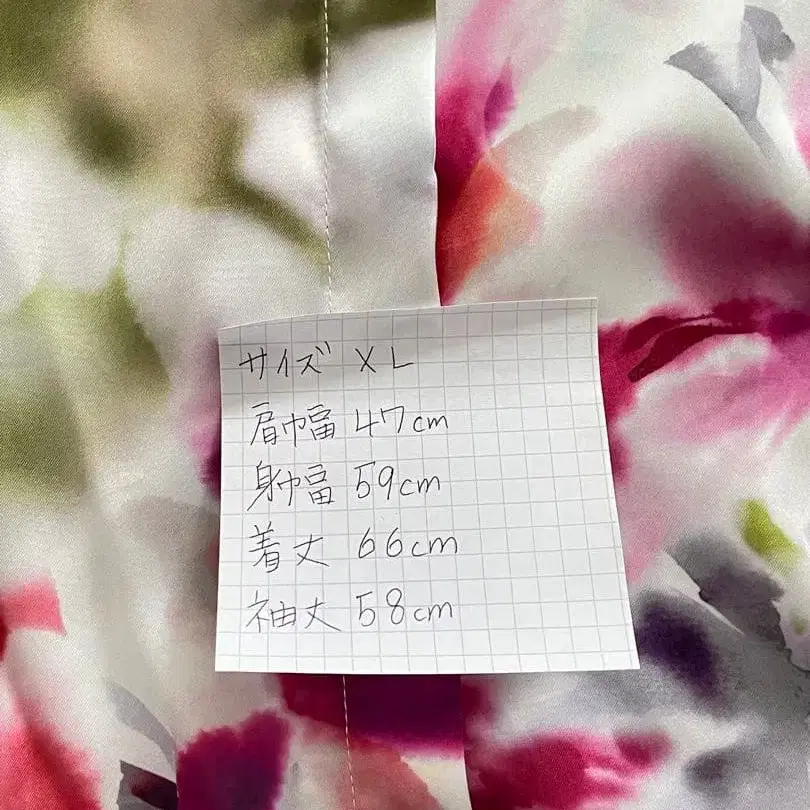 サイズ XL
肩幅 47cm
身幅 59cm
着丈 66cm
袖丈 58cm